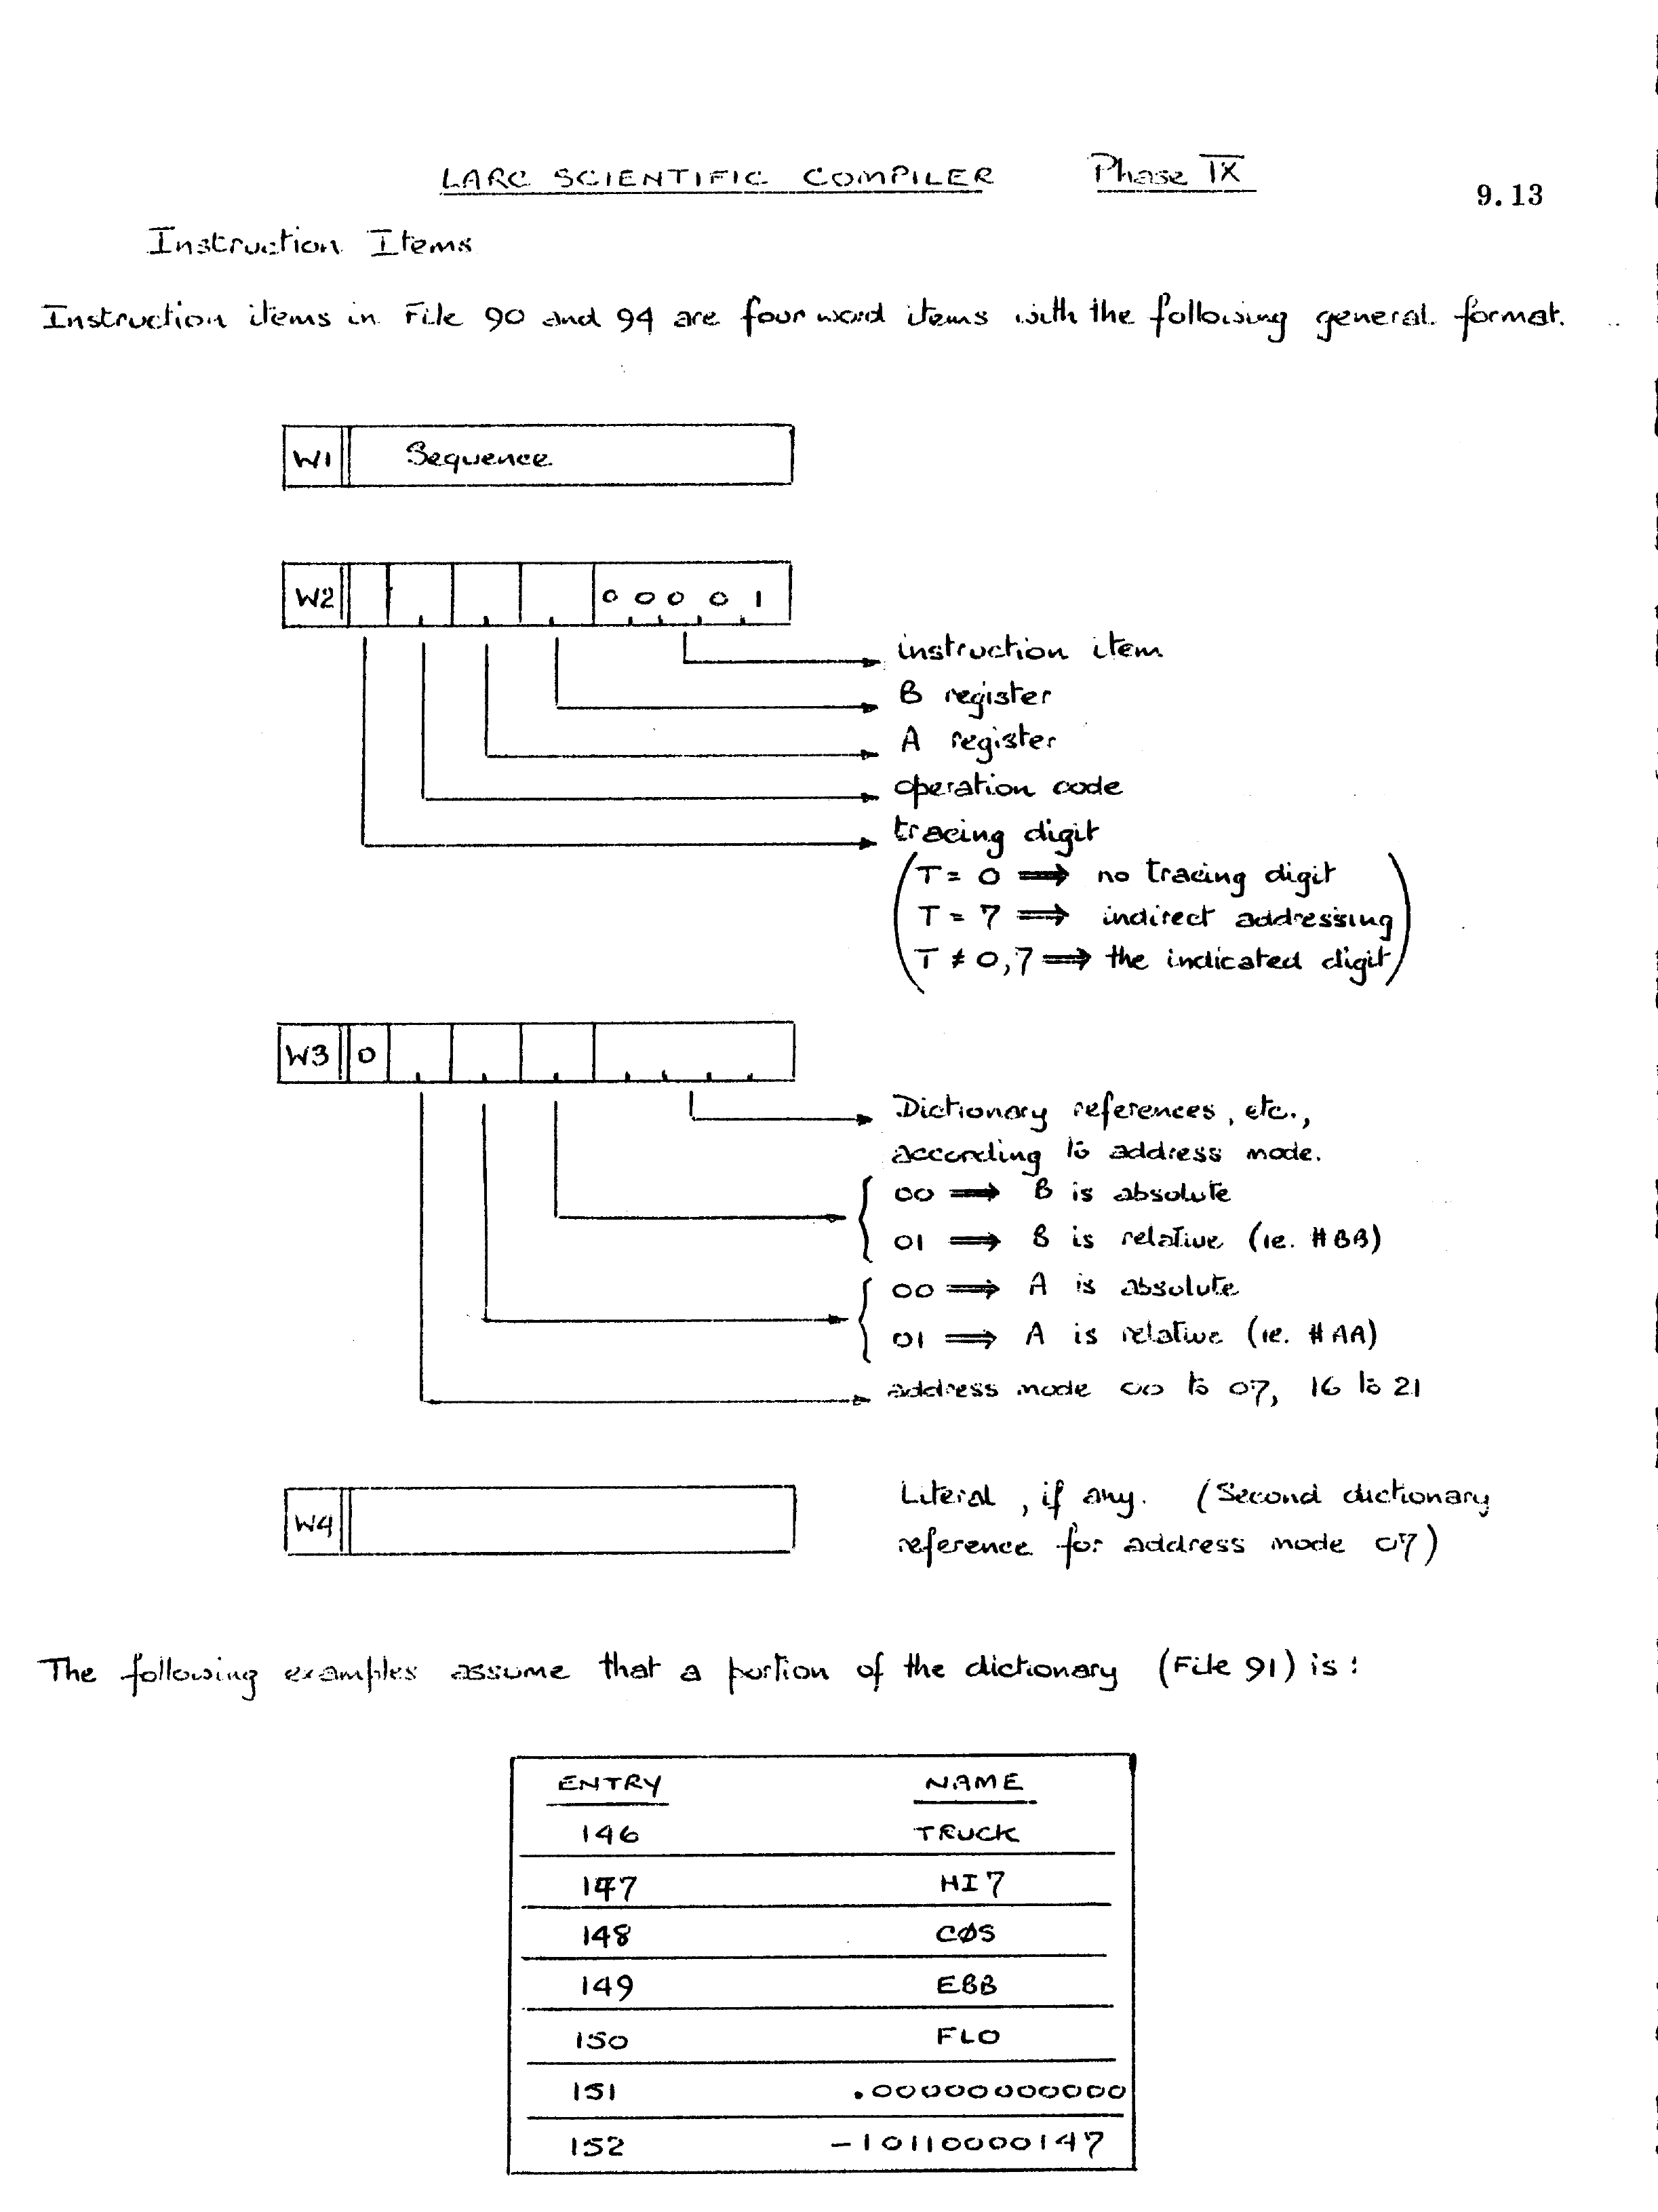 LARC SCIENTIFIC COMPILER Phase IX
9.13
Instruction Items
Instruction items in File 90 and 94 are four word items with the following general format.
W1 Sequence
W2 0 0 0 0 1
instruction item
B register
A register
operation code
tracing digit
T = 0 ⟹ no tracing digit
T = 7 ⟹ indirect addressing
T ≠ 0,7 ⟹ the indicated digit
W3 0
Dictionary references, etc.,
according to address mode.
00 ⟹ B is absolute
01 ⟹ B is relative (ie. #BB)
00 ⟹ A is absolute
01 ⟹ A is relative (ie. #AA)
address mode 00 to 07, 16 to 21
W4 Literal, if any. (Second dictionary
reference for address mode 07)
The following examples assume that a portion of the dictionary (File 91) is:
ENTRY NAME
146 TRUCK
147 HI7
148 CØS
149 EBB
150 FLO
151 .00000000000
152 -10110000147